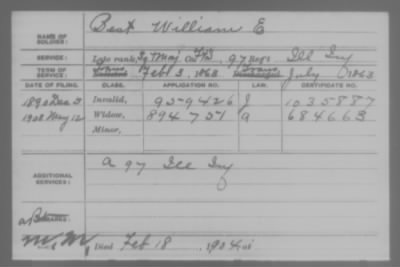 Best William E
NAME OF SOLDIER:
SERVICE: Late rank, Sg Maj Co. F&S, 97 Reg't Ill Inf
TERM OF SERVICE: Feb 3, 1863 July 1863
DATE OF FILING. CLASS. APPLICATION NO. LAW. CERTIFICATE NO.
1890 Dec 3 Invalid, 959426 J 1035887
1908 May 12 Widow, 894751 a 684663
Minor,
ADDITIONAL SERVICES: A 97 Ill Inf
REMARKS:
Died Feb 18, 1904, at